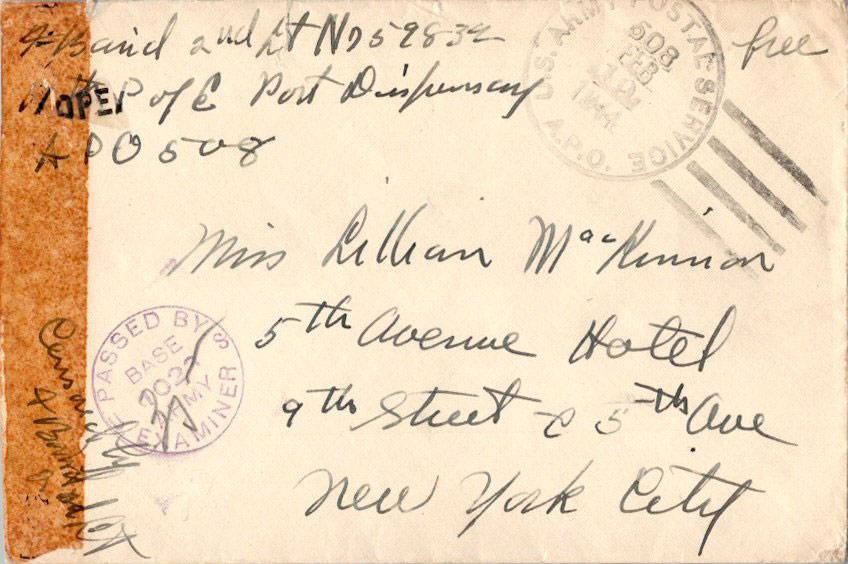 Band 2nd Lt N759832
11th P of E Port Dispensary
APO 508
free
OPE
U.S. ARMY POSTAL SERVICE
A.P.O.
508
FEB
1944
Miss Lillian MacKinnon
5th Avenue Hotel
9th Street & 5th Ave
New York City
PASSED BY
BASE
ARMY EXAMINER
Censored by